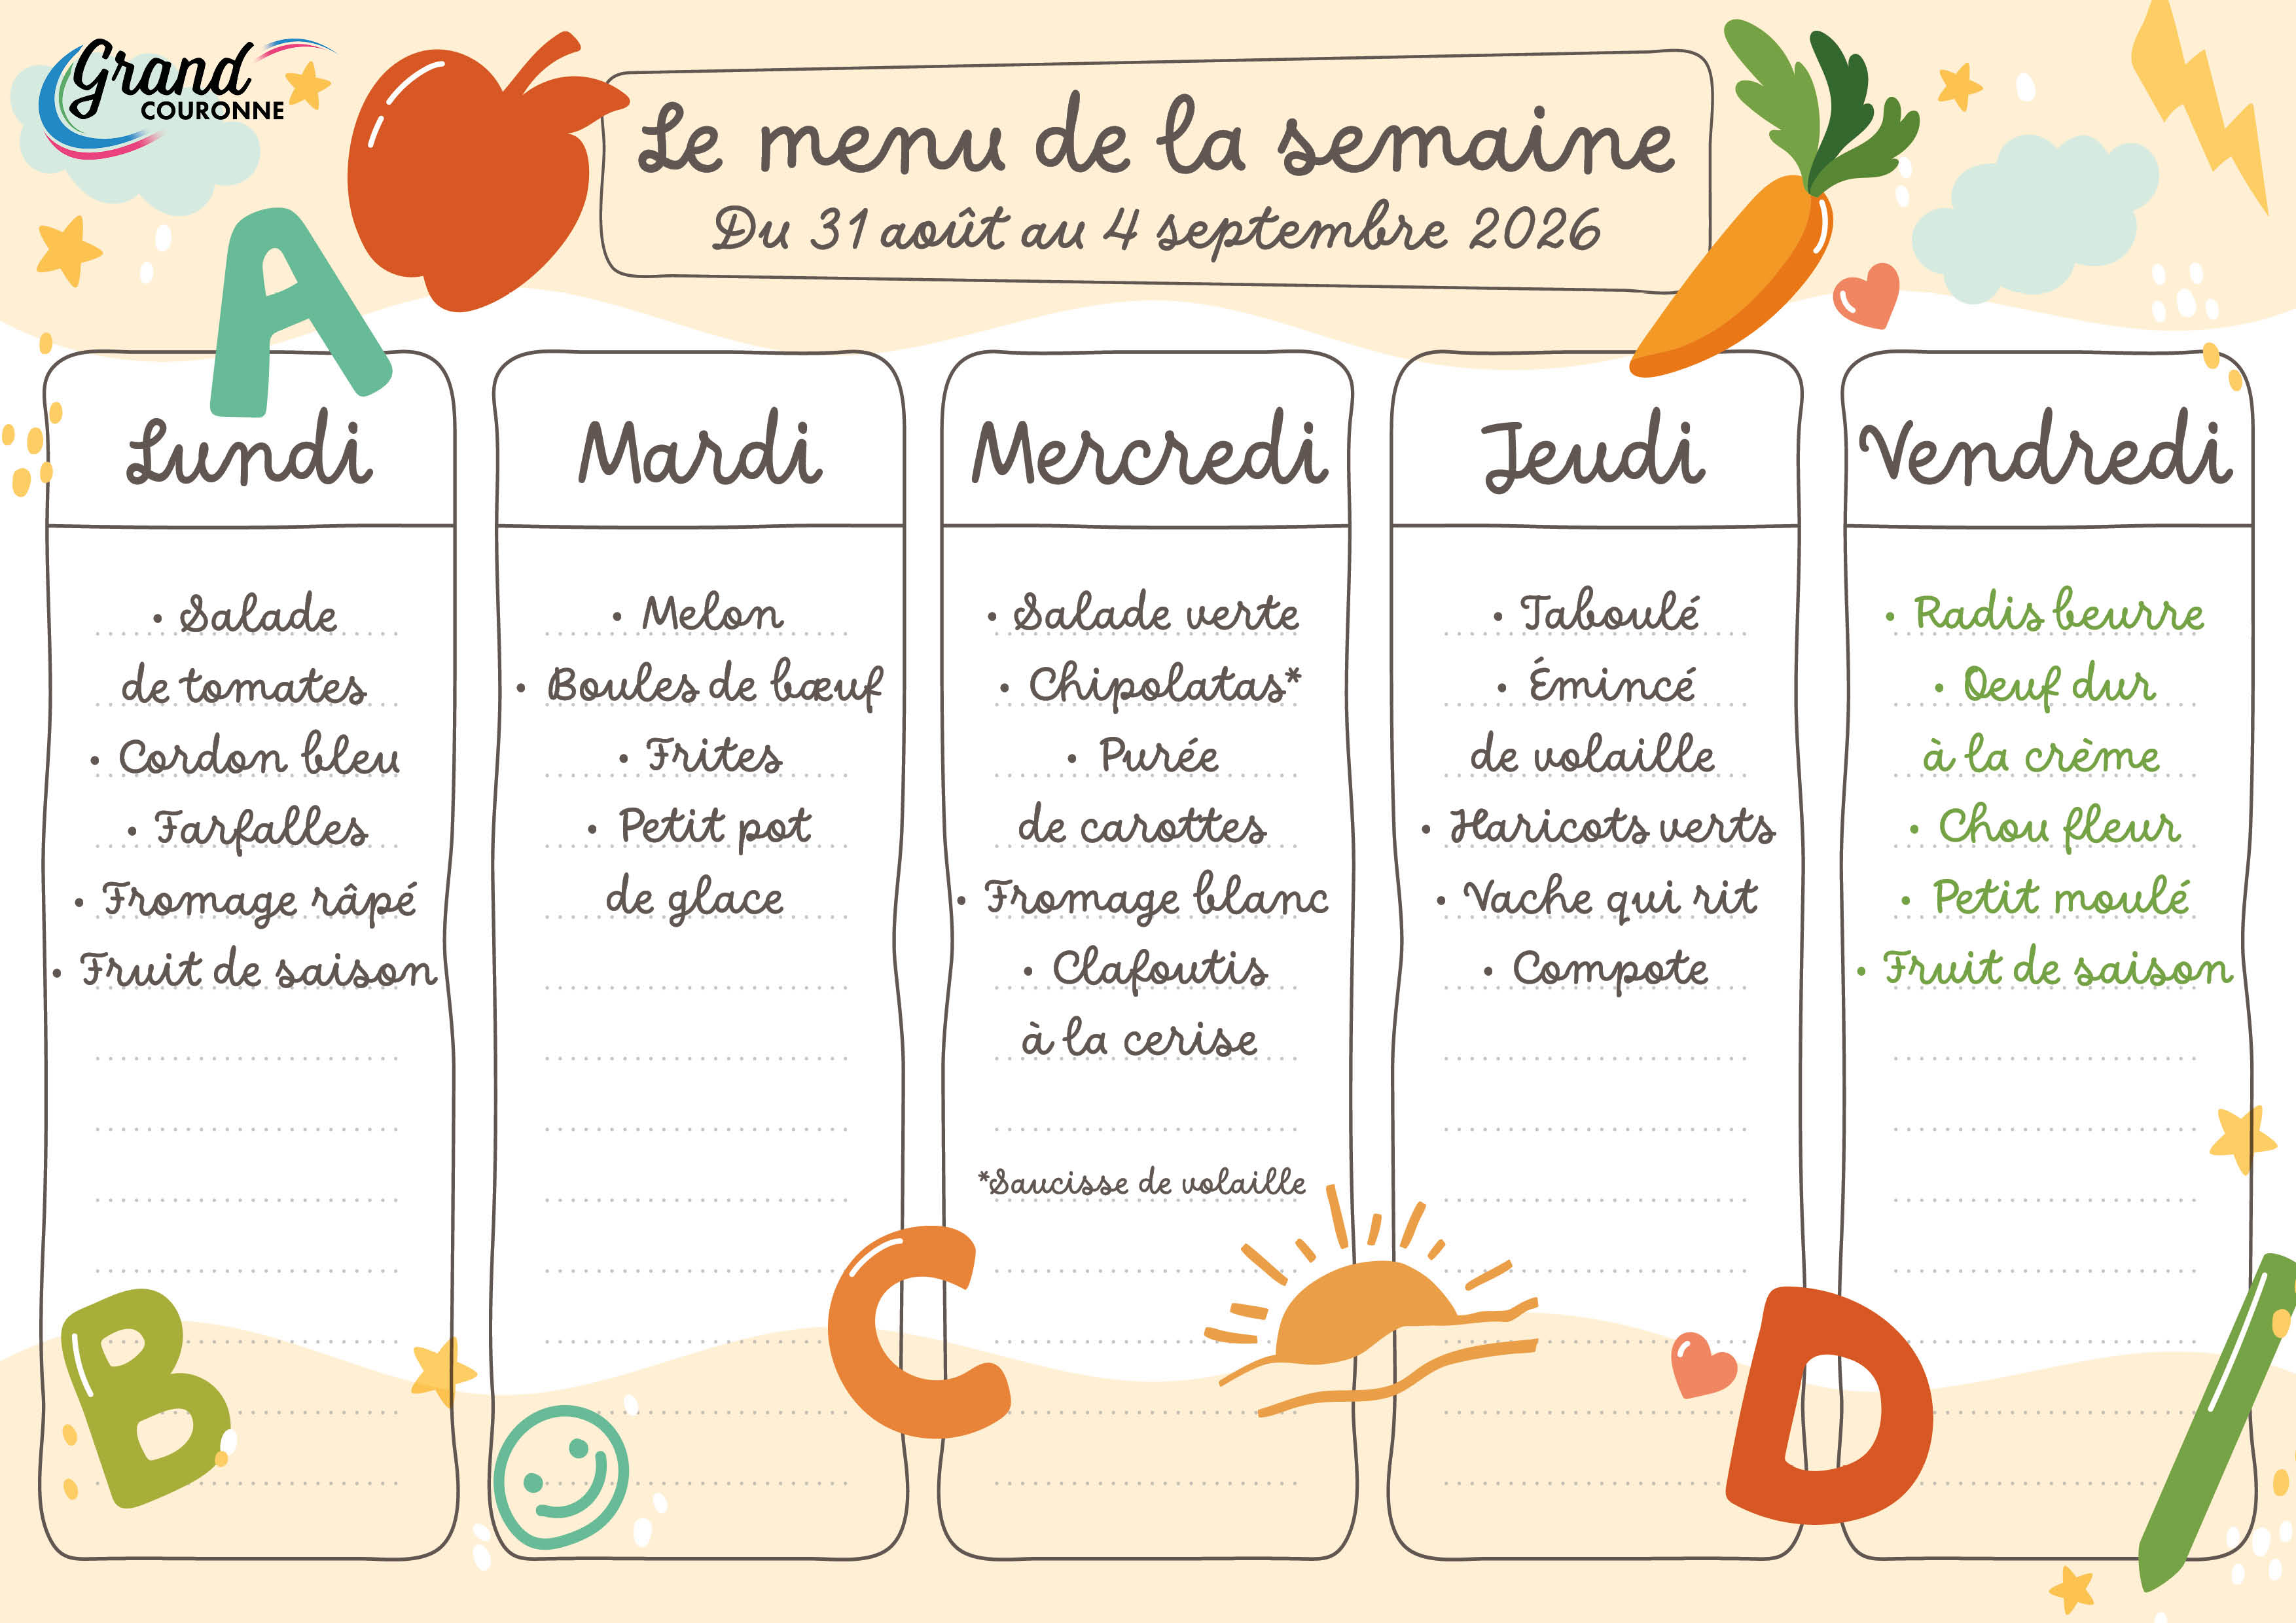 Grand
COURONNE
Le menu de la semaine
Du 31 août au 4 septembre 2026
Lundi
• Salade
de tomates
• Cordon bleu
• Farfalles
• Fromage râpé
• Fruit de saison
Mardi
• Melon
• Boules de bœuf
• Frites
• Petit pot
de glace
Mercredi
• Salade verte
• Chipolatas*
• Purée
de carottes
• Fromage blanc
• Clafoutis
à la cerise
*Saucisse de volaille
Jeudi
• Taboulé
• Émincé
de volaille
• Haricots verts
• Vache qui rit
• Compote
Vendredi
• Radis beurre
• Oeuf dur
à la crème
• Chou fleur
• Petit moulé
• Fruit de saison
A
B
C
D